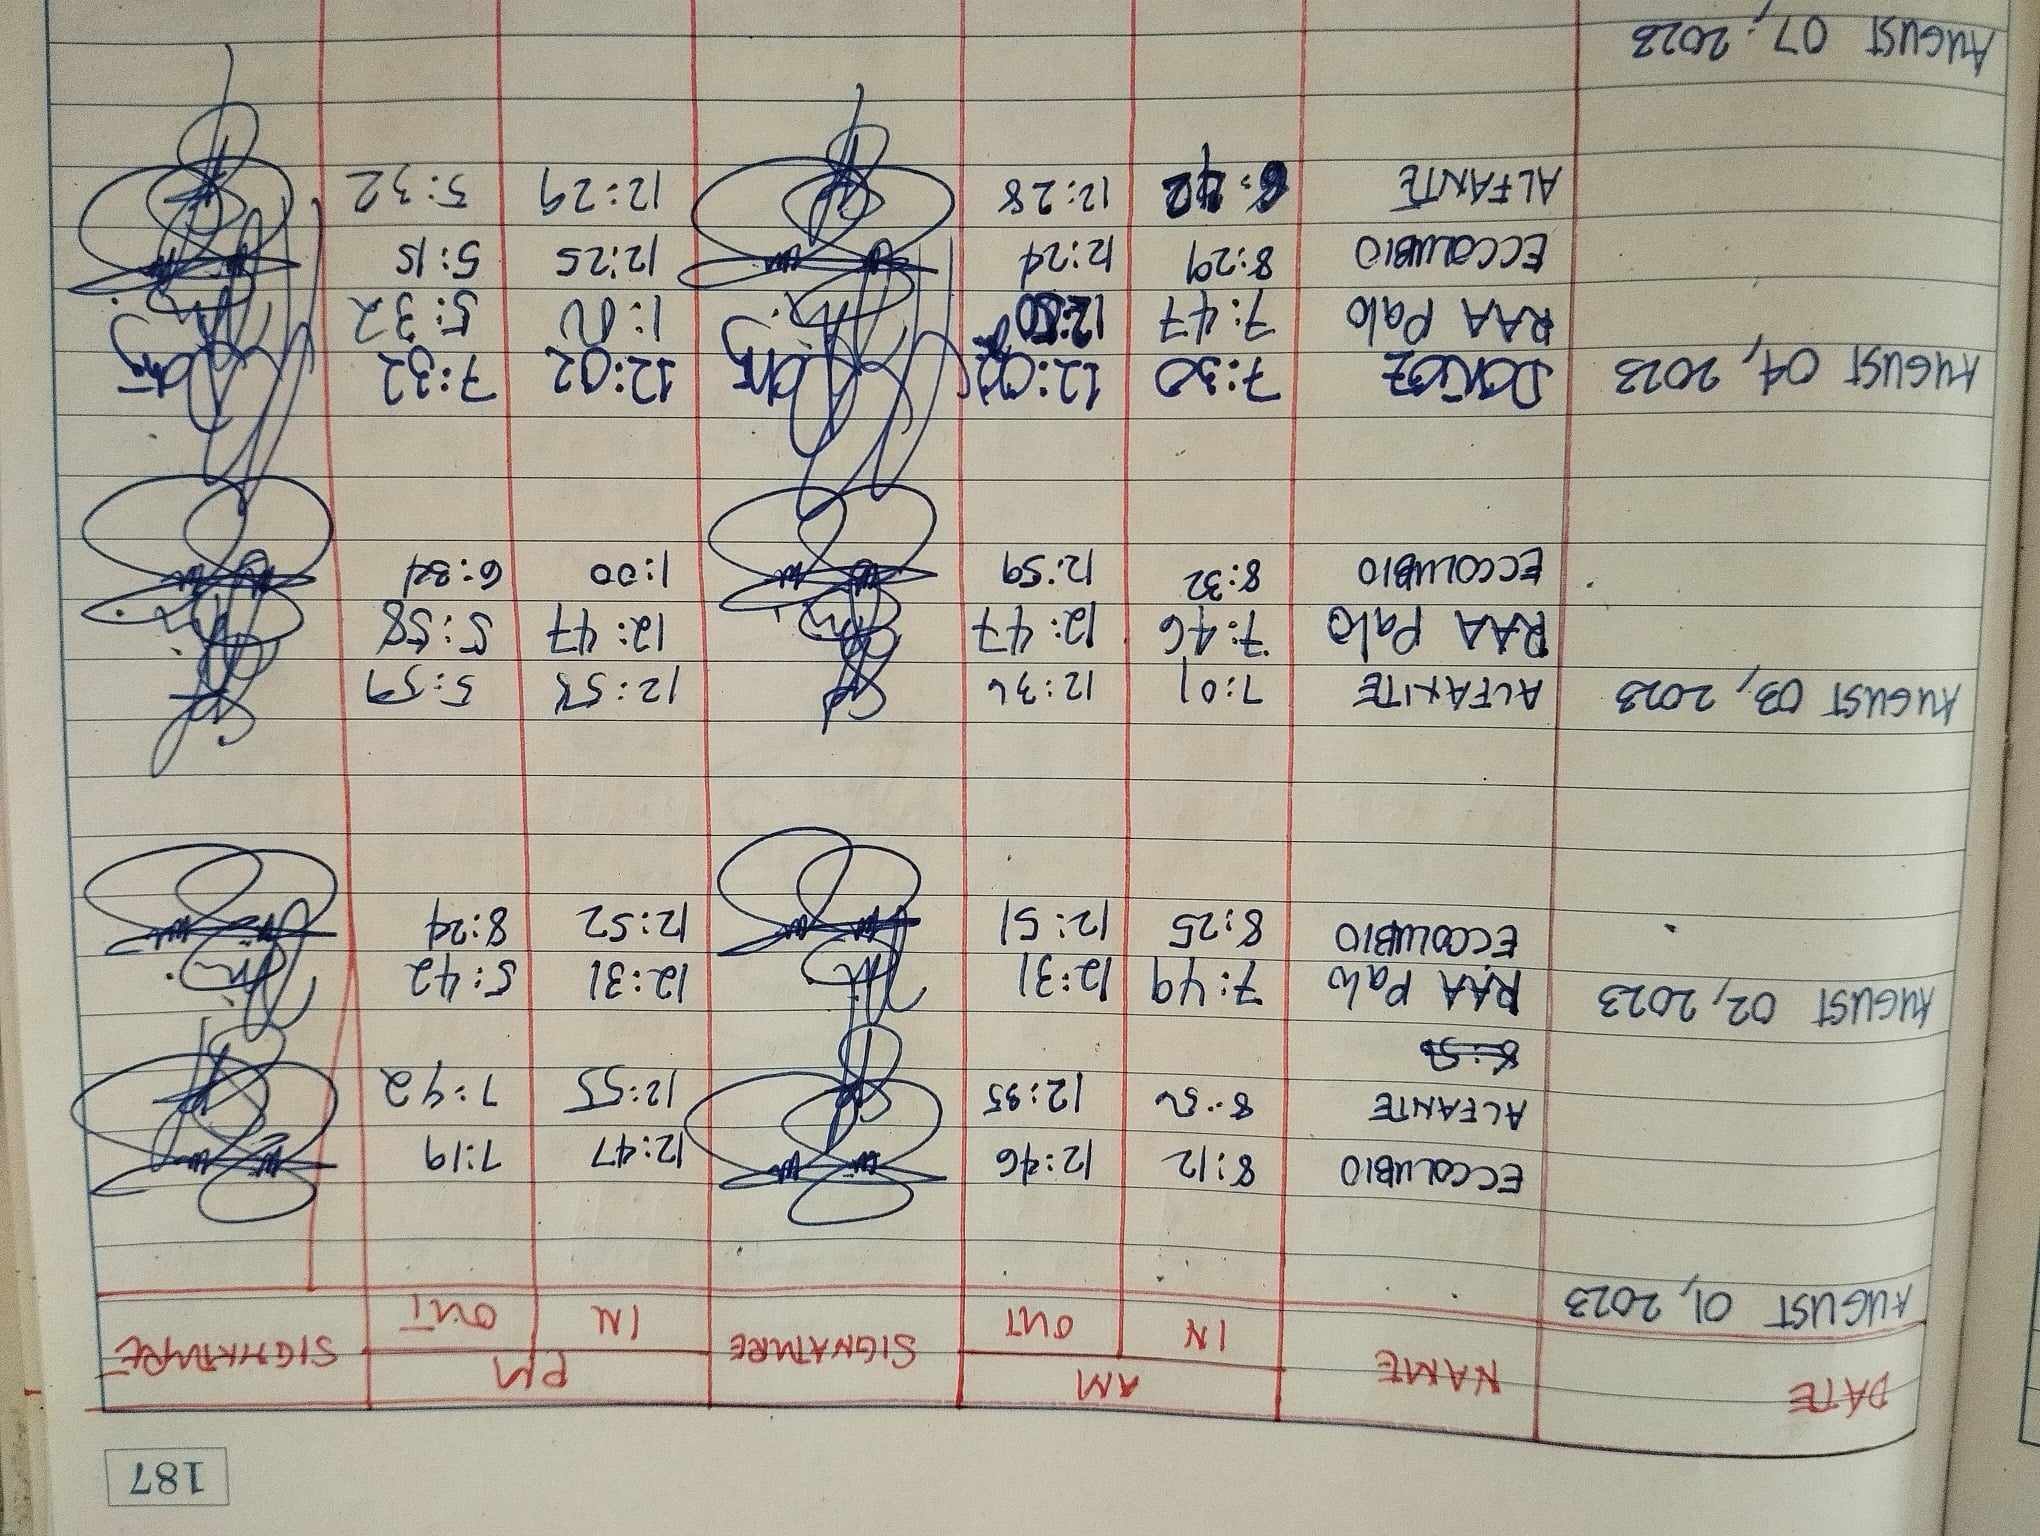 187
DATE NAME AM SIGNATURE PM SIGNATURE
IN OUT IN OUT
AUGUST 01, 2023
ECCOLUBIO 8:12 12:46 12:47 7:19
ALFANTE 12:35 12:55 7:42
AUGUST 02, 2023 RAA Palo 7:49 12:31 12:31 5:42
ECCOLUBIO 8:25 12:51 12:52 8:24
AUGUST 03, 2023 ALFANTE 7:01 12:36 12:58 5:59
RAA Palo 7:46 12:47 12:47 5:58
ECCOLUBIO 8:32 12:59 1:00 6:34
AUGUST 04, 2023 7:30 12:02 12:02 7:32
RAA Palo 7:47 12:50 1:00 5:32
ECCOLUBIO 8:29 12:24 12:25 5:15
ALFANTE 12:28 12:29 5:32
AUGUST 07, 2023